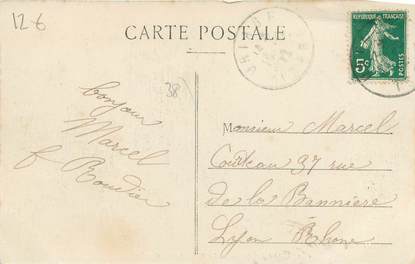 12-6
CARTE POSTALE
REPUBLIQUE FRANÇAISE
5c
POSTES
38
bonjour
Marcel
Monsieur Marcel
37 rue
de la Bannière
Lyon Rhone